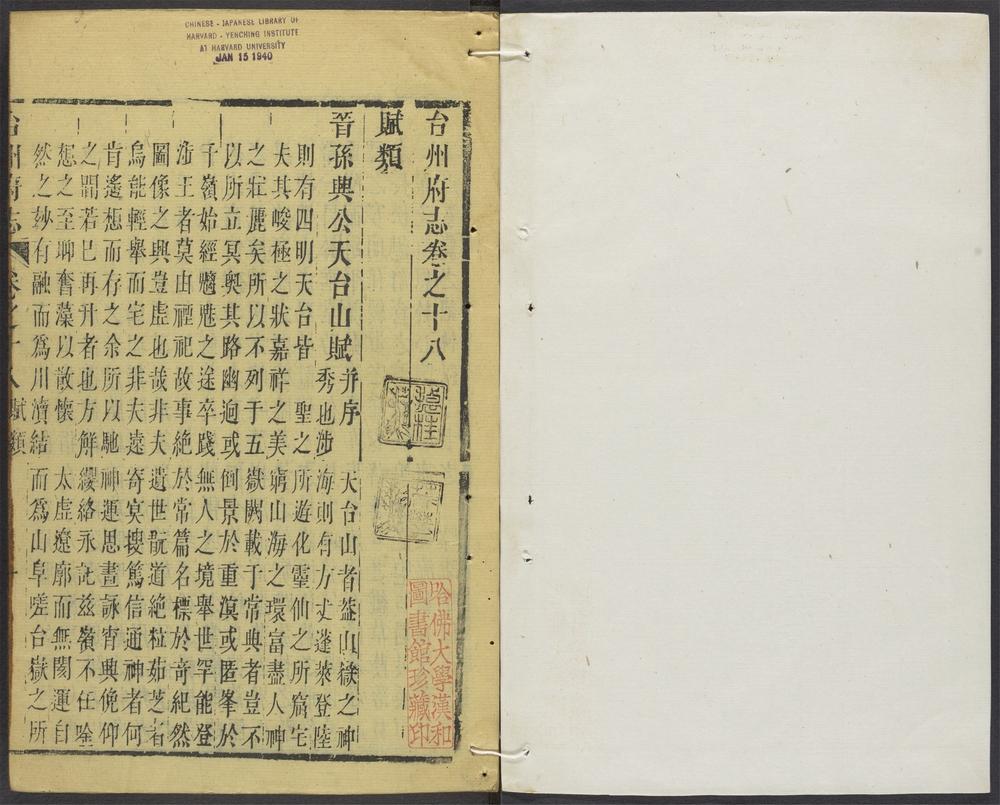 CHINESE - JAPANESE LIBRARY OF
HARVARD - YENCHING INSTITUTE
AT HARVARD UNIVERSITY
JAN 15 1940
台州府志卷之十八
賦類
晉孫興公天台山賦并序
天台山者蓋山嶽之神
秀也涉海則有方丈蓬萊登陸
則有四明天台皆聖之所遊化靈仙之所窟宅
夫其峻極之狀嘉祥之美窮山海之環富盡人神
之壯麗矣所以不列于五嶽闕載于常典者豈不
以所立冥奧其路幽迥或倒景於重溟或匿峯於
千嶺始經魑魅之途卒踐無人之境舉世罕能登
涉王者莫由禋祀故事絕於常篇名標於奇紀然
圖像之興豈虛也哉非夫遺世翫道絕粒茹芝者
烏能輕舉而宅之非夫遠寄㝠搜篤信通神者何
肯遙想而存之余所以馳神運思晝詠宵興俛仰
之間若已再升者也方解纓絡永託茲嶺不任唫
想之至聊奮藻以散懷
太虛遼廓而無閡運自
然之玅有融而爲川瀆結而爲山阜嗟台嶽之所
台州府志
卷之十八
賦類
哈佛大學漢和
圖書館珍藏印